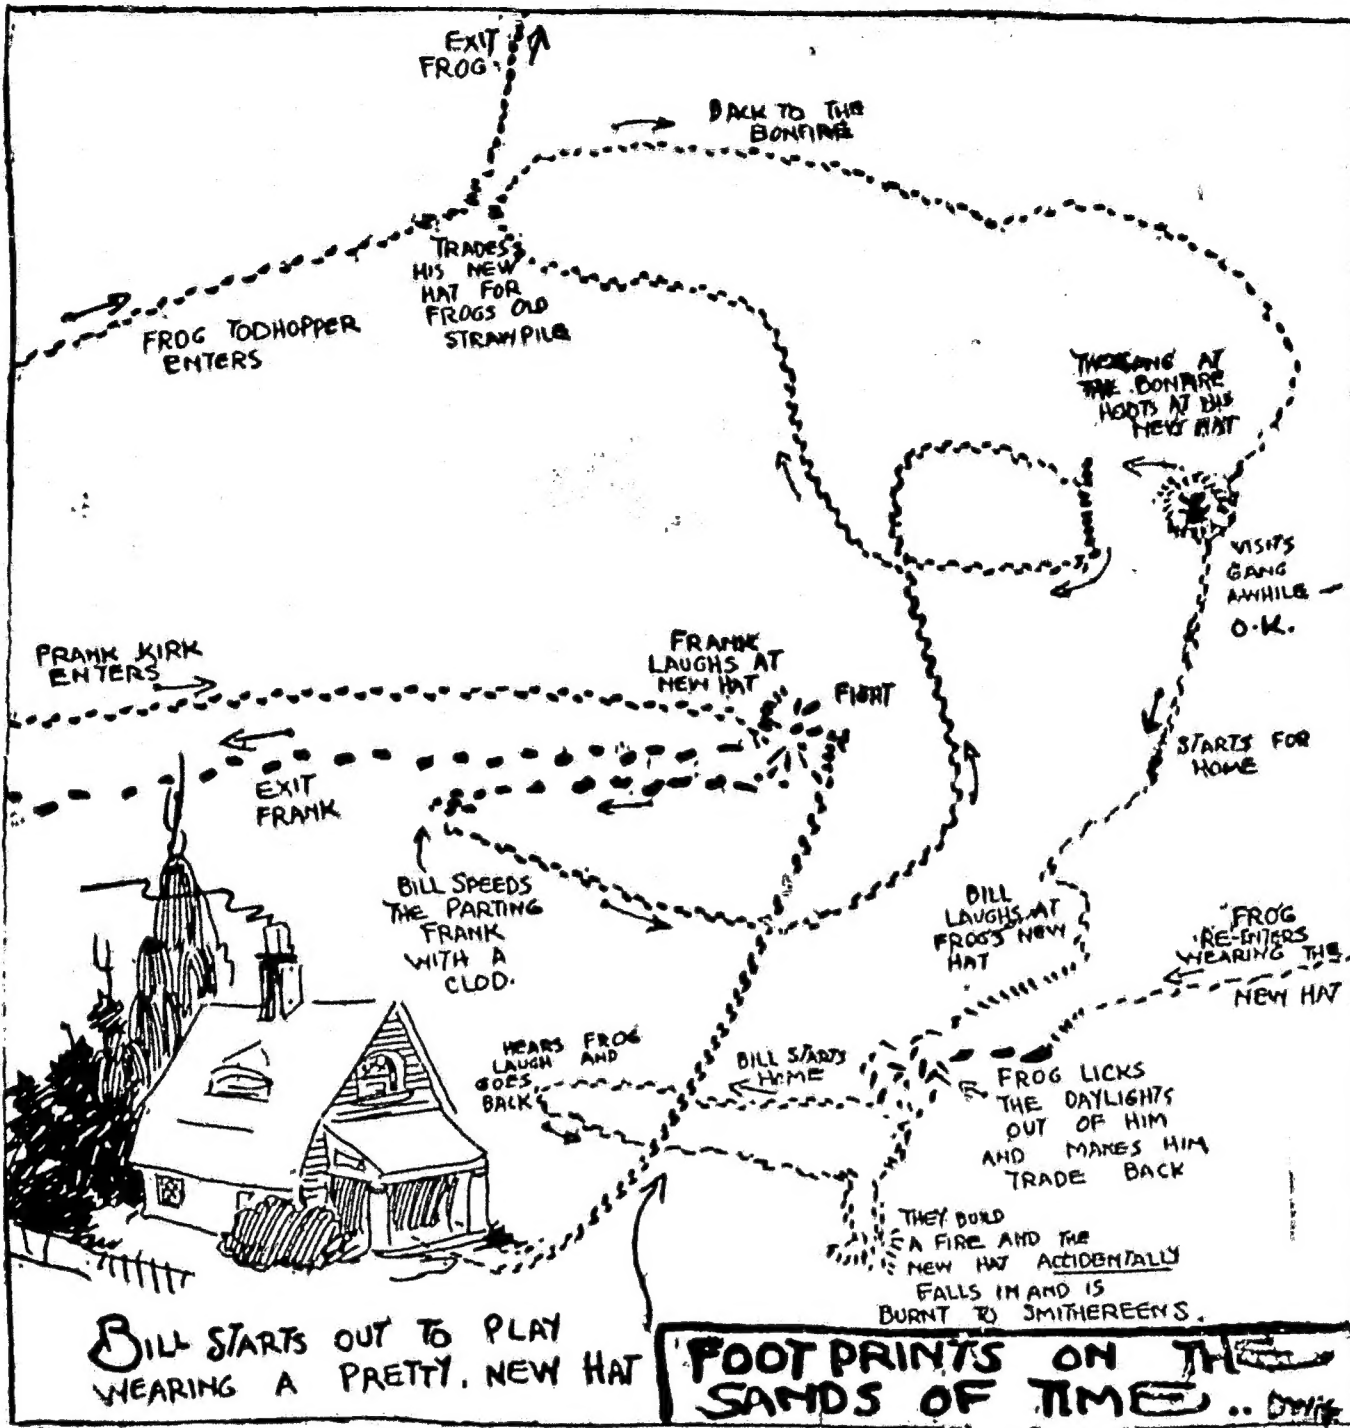 EXIT
FROG.
BACK TO THE
BONFIRE
TRADES
HIS NEW
HAT FOR
FROGS OLD
STRAWPILE
FROG TODHOPPER
ENTERS
THE GANG AT
THE BONFIRE
HOOTS AT HIS
NEW HAT
VISITS
GANG
AWHILE -
O.K.
FRANK KIRK
ENTERS
FRANK
LAUGHS AT
NEW HAT
FIGHT
STARTS FOR
HOME
EXIT
FRANK
BILL SPEEDS
THE PARTING
FRANK
WITH A
CLOD.
BILL
LAUGHS AT
FROG'S NEW
HAT
FROG
RE-ENTERS
WEARING THE
NEW HAT
HEARS FROG
LAUGH AND
GOES
BACK
BILL STARTS
HOME
FROG LICKS
THE DAYLIGHTS
OUT OF HIM
AND MAKES HIM
TRADE BACK
THEY BUILD
A FIRE AND THE
NEW HAT ACCIDENTALLY
FALLS IN AND IS
BURNT TO SMITHEREENS.
BILL STARTS OUT TO PLAY
WEARING A PRETTY. NEW HAT
FOOT PRINTS ON THE
SANDS OF TIME..
DWIG